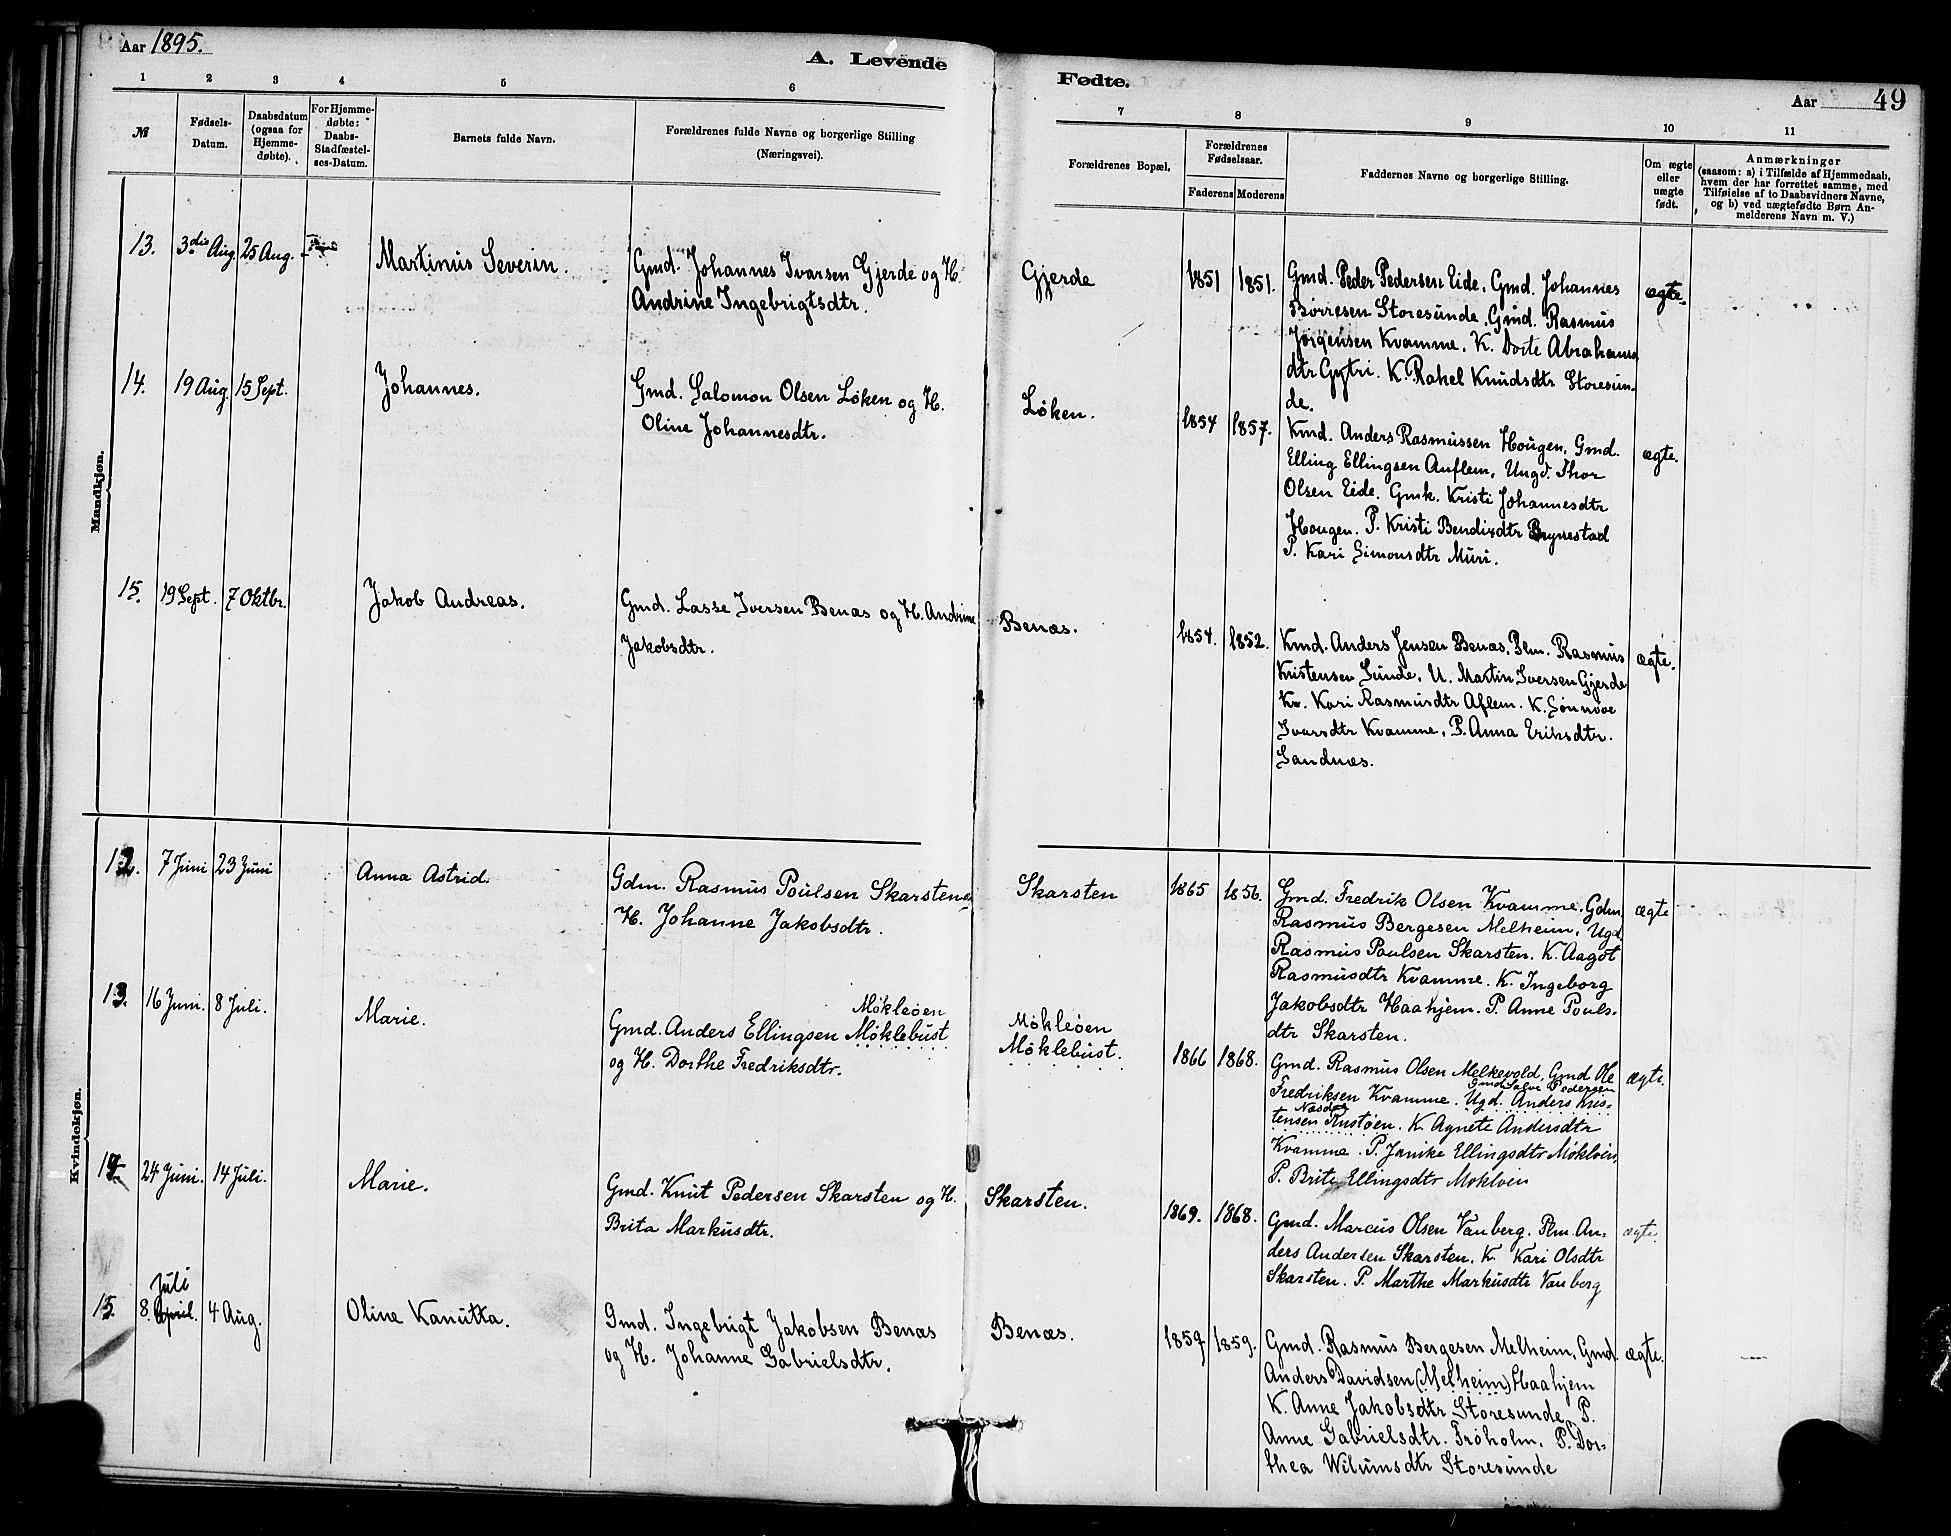 Aar 1895.
A. Levende
Fødte.
Aar 49
1 2 3 4 5 6
7 8 9 10 11
№
Fødsels-
Datum.
Daabsdatum
(ogsaa for
Hjemme-
døbte).
For Hjemme-
døbte:
Daabs-
Stadfæstel-
ses-Datum.
Barnets fulde Navn.
Forældrenes fulde Navne og borgerlige Stilling
(Næringsvei).
Forældrenes Bopæl.
Forældrenes
Fødselsaar.
Faderens Moderens
Faddernes Navne og borgerlige Stilling.
Om ægte
eller
uægte
født.
Anmærkninger
(saasom: a) i Tilfælde af Hjemmedaab,
hvem der har forrettet samme, med
Tilføielse af to Daabsvidners Navne,
og b) ved uægtefødte Børn An-
melderens Navn m. V.)
Mandkjøn.
13. 3die Aug. 25 Aug. Martinus Severin.
Gmd. Johannes Ivarsen Gjerde og H.
Andrine Ingebrigtsdtr.
Gjerde 1851 1851.
Gmd. Peder Pedersen Eide, Gmd. Johannes
Børresen Storesunde, Gmd. Rasmus
Jørgensen Kvamme, K. Dorte Abrahams
dtr Gytri. K. Rahel Knudsdtr Storesun-
de.
ægte.
14. 19 Aug. 15 Sept. Johannes.
Gmd. Salomon Olsen Løken og H.
Oline Johannesdtr.
Løken. 1854 1857.
Kmd. Anders Rasmussen Hougen, Gmd.
Elling Ellingsen Auflem, Ungd. Thor
Olsen Eide. Gmk. Kristi Johannesdtr
Hougen. P. Kristi Bendixdtr Brynestad
P. Kari Simonsdtr Muri.
ægte.
15. 19 Sept. 7 Oktbr. Jakob Andreas.
Gmd. Lasse Iversen Benæs og H. Andrine
Jakobsdtr.
Benæs. 1854. 1852.
Kmd. Anders Jensen Benæs, Plm. Rasmus
Kristensen Sunde, U. Martin Iversen Gjerde
Kv. Kari Rasmusdtr Aflem. K. Sønnøve
Ivarsdtr Kvamme, P. Anna Eriksdtr.
Sandnæs.
ægte.
Kvindekjøn.
12. 7 Juni 23 Juni Anna Astrid.
Gdm. Rasmus Poulsen Skarsten og
H. Johanne Jakobsdtr.
Skarsten 1865 1856.
Gmd. Fredrik Olsen Kvamme, Gdm.
Rasmus Bergesen Melheim, Ugd.
Rasmus Poulsen Skarsten. K. Aagot
Rasmusdtr Kvamme. K. Ingeborg
Jakobsdtr Haahjem. P. Anne Pouls-
dtr Skarsten.
ægte
13. 16 Juni. 8 Juli. Marie.
Møkleøen
Gmd. Anders Ellingsen Møklebust
og H. Dorthe Fredriksdtr.
Møkleøen
Møklebust.
1866 1868.
Gmd. Rasmus Olsen Melkevold, Gmd Ole
Gmd Salve Pedersen
Fredriksen Kvamme. Ugd. Anders Kris-
tensen Rustøen. K. Agnete Andersdtr
Kvamme. P. Janike Ellingsdtr Møkløen,
P. Brite Ellingsdtr Møkløen
ægte.
14. 24 Juni. 14 Juli. Marie.
Gmd. Knut Pedersen Skarsten og H.
Brita Markusdtr.
Skarsten. 1869. 1868.
Gmd. Marcus Olsen Vanberg. Plm. An-
ders Andersen Skarsten, K. Kari Olsdtr
Skarsten. P. Marthe Markusdtr Vanberg
ægte.
Juli
15. 8. April. 4 Aug. Oline Kanutta.
Gmd. Ingebrigt Jakobsen Benæs
og H. Johanne Gabrielsdtr.
Benæs. 1859 1859.
Gmd. Rasmus Bergesen Melheim, Gmd.
Anders Davidsen (Melheim) Haahjem
K. Anne Jakobsdtr Storesunde, P.
Anne Gabrielsdtr. Frøholm, P. Dor-
thea Wilumsdtr Storesunde
ægte.